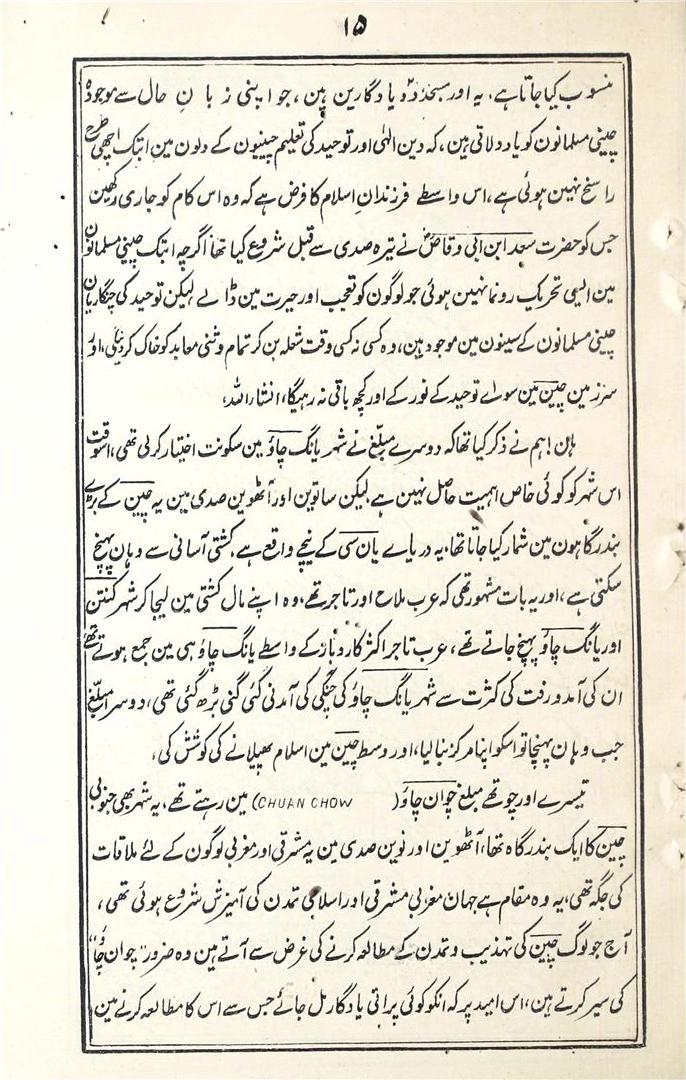 ۱۵
منسوب کیا جاتا ہے، یہ اور مسجد دو یادگارین ہین، جو اپنی زبان حال سے موجودہ
چینی مسلمانون کو یاد دلاتی ہین، کہ دین الٰہی اور توحید کی تعلیم چینیون کے دلون مین ابتک اچھی طرح
راسخ نہین ہوئی ہے، اس واسطے فرزندانِ اسلام کا فرض ہے کہ وہ اس کام کو جاری رکھین
جس کو حضرت سعد ابن ابی وقاصؓ نے تیرہ صدی سے قبل شروع کیا تھا اگرچہ ابتک چینی مسلمانون
مین ایسی تحریک رونما نہین ہوئی جو لوگون کو تعجب اور حیرت مین ڈالے لیکن توحید کی چنگاریان
چینی مسلمانون کے سینون مین موجود ہین، وہ کسی نہ کسی وقت شعلہ بن کر تمام وثنی معابد کو خاک کر دینگی، اور
سرزمین چین مین سواے توحید کے نور کے اور کچھ باقی نہ رہیگا، انشاراللہ،
ہان! ہم نے ذکر کیا تھا کہ دوسرے مبلّغ نے شہر یانگ چاؤ مین سکونت اختیار کرلی تھی، اسوقت
اس شہر کو کوئی خاص اہمیت حاصل نہین ہے لیکن ساتوین اور آٹھوین صدی مین یہ چین کے بڑے
بندرگاہون مین شمار کیا جاتا تھا، یہ دریاے یان سی کے نیچے واقع ہے، کشتی آسانی سے وہان پہنچ
سکتی ہے، اور یہ بات مشہور تھی کہ عرب ملاح اور تاجر تھے، وہ اپنے مال کشتی مین لیجا کر شہر کنتن
اور یانگ چاؤ پہنچ جاتے تھے، عرب تاجر اکثر کاروبار کے واسطے یانگ چاؤ ہی مین جمع ہوتے تھے
ان کی آمد و رفت کی کثرت سے شہر یانگ چاؤ کی چنگی کی آمدنی کئی گنی بڑھ گئی تھی، دوسرا مبلّغ
جب وہان پہنچا تو اسکو اپنا مرکز بنا لیا، اور وسط چین مین اسلام پھیلانے کی کوشش کی،
تیسرے اور چوتھے مبلغ چوان چاؤ (CHUAN CHOW) مین رہتے تھے، یہ شہر بھی جنوبی
چین کا ایک بندرگاہ تھا، آٹھوین اور نوین صدی مین یہ مشرقی اور مغربی لوگون کے لئے ملاقات
کی جگہ تھی، یہ وہ مقام ہے جہان مغربی مشرقی اور اسلامی تمدن کی آمیزش شروع ہوئی تھی،
آج جو لوگ چین کی تہذیب و تمدن کے مطالعہ کرنے کی غرض سے آتے ہین وہ ضرور "چوان چاؤ"
کی سیر کرتے ہین، اس امید پر کہ انکو کوئی پرانی یادگار مل جائے جس سے اس کا مطالعہ کرنے مین